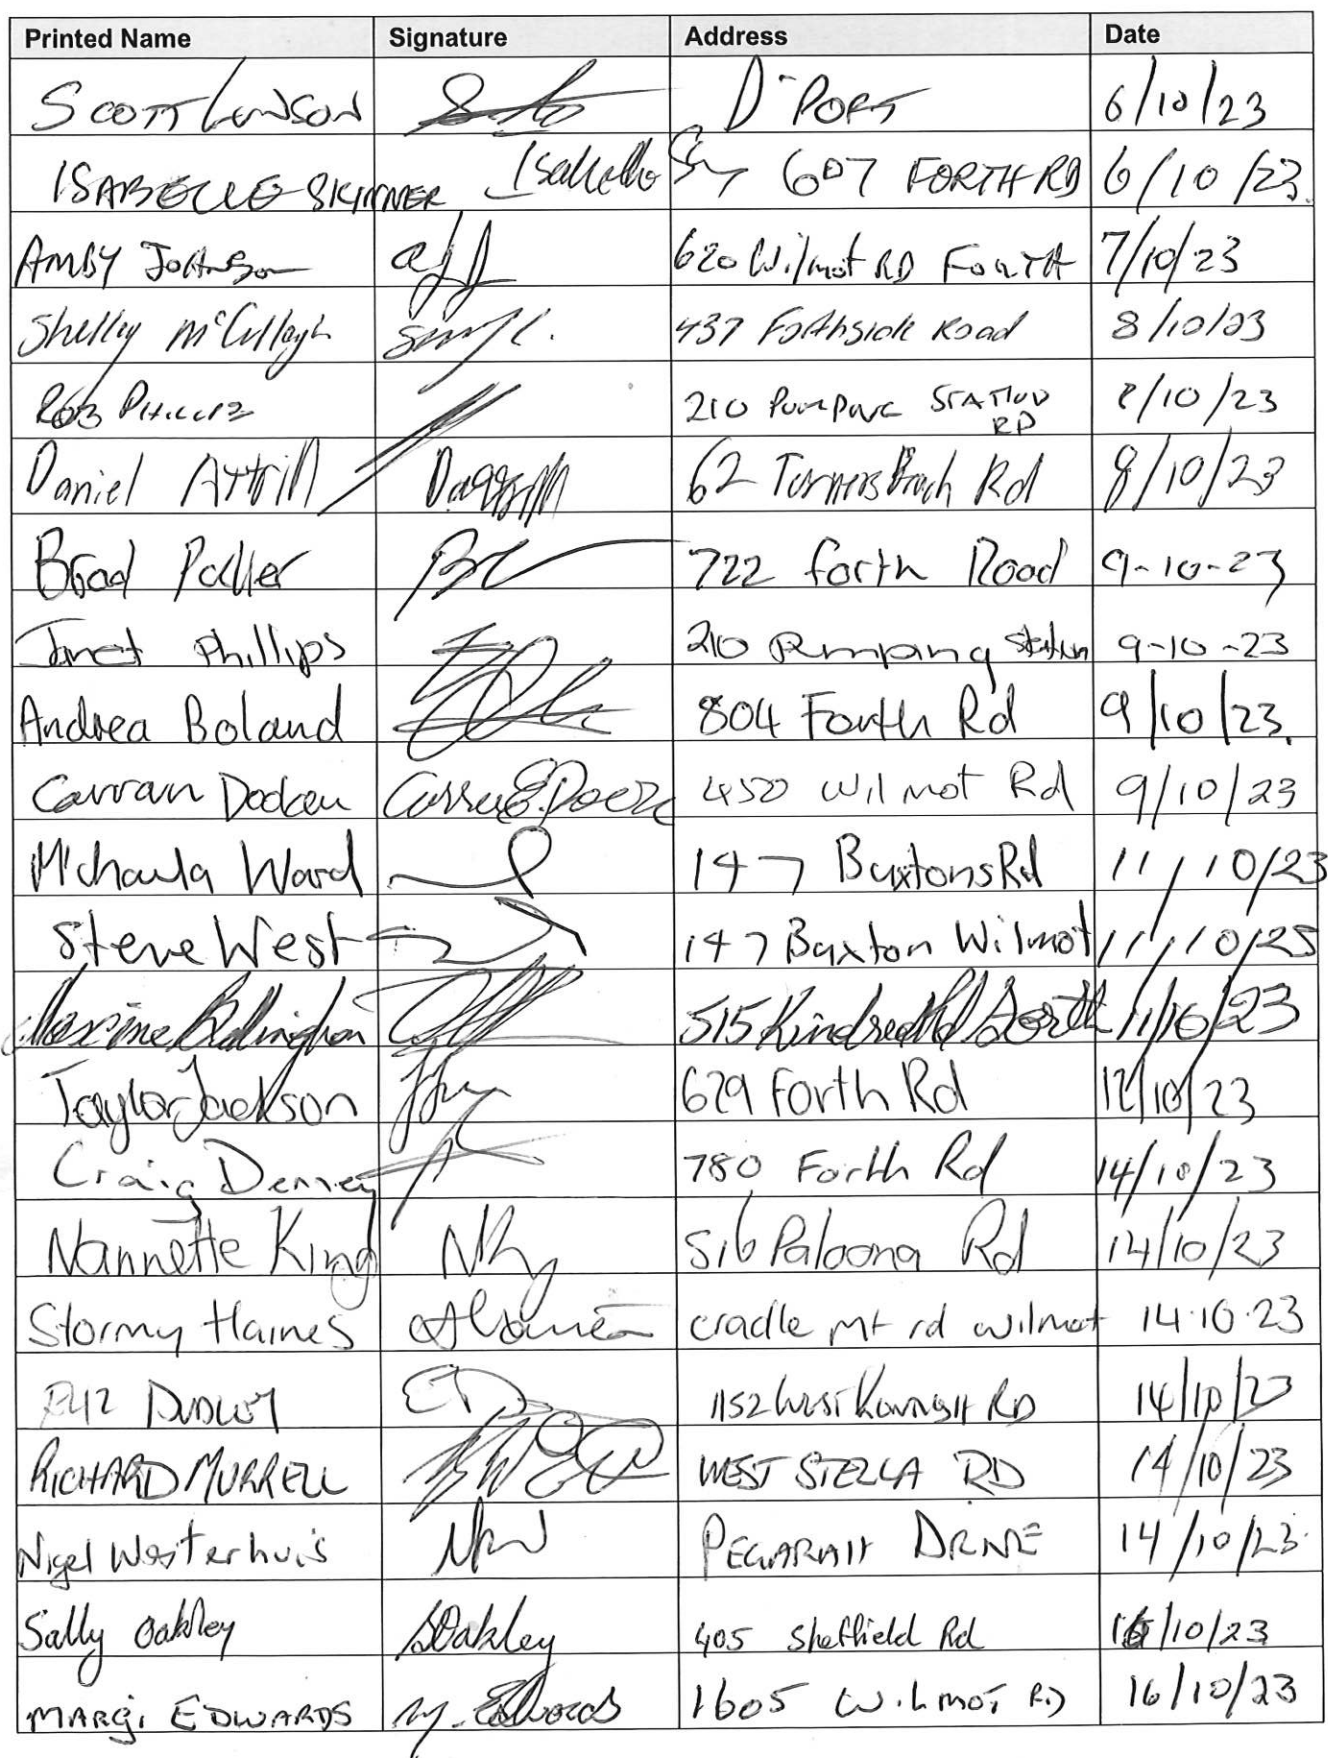 Printed Name Signature Address Date
SCOTT D'PORT 6/10/23
ISABELLE SKINNER Isabelle 607 FORTH RD 6/10/23.
AMBY Johnson 620 Wilmot RD FORTH 7/10/23
Shelley McCullagh 437 Forthside Road 8/10/23
ROB PHILLIPS 210 PUMPING STATION RD 8/10/23
Daniel Attrill 62 Turners Beach Rd 8/10/23
Brad 722 forth Road 9-10-23
Janet Phillips 210 Pumping station 9-10-23
Andrea Boland 804 Forth Rd 9/10/23.
Carran 450 Wilmot Rd 9/10/23
Michaela Ward 147 Buxtons Rd 11/10/23
Steve West 147 Buxton Wilmot 11/10/23
Maxine 515 Kindred Rd Forth 11/10/23
Taylor Jackson 629 Forth Rd 12/10/23
Craig Denney 780 Forth Rd 14/10/23
Nannette King 516 Paloona Rd 14/10/23
Stormy Haines cradle mt rd wilmot 14.10.23
DUDLEY ED 1152 WEST RD 14/10/23
RICHARD MURRELL WEST STELLA RD 14/10/23
Nigel Westerhuis NW DRIVE 14/10/23.
Sally Oakley SOakley 405 Sheffield Rd 16/10/23
MARGI EDWARDS M. Edwards 1605 Wilmot RD 16/10/23